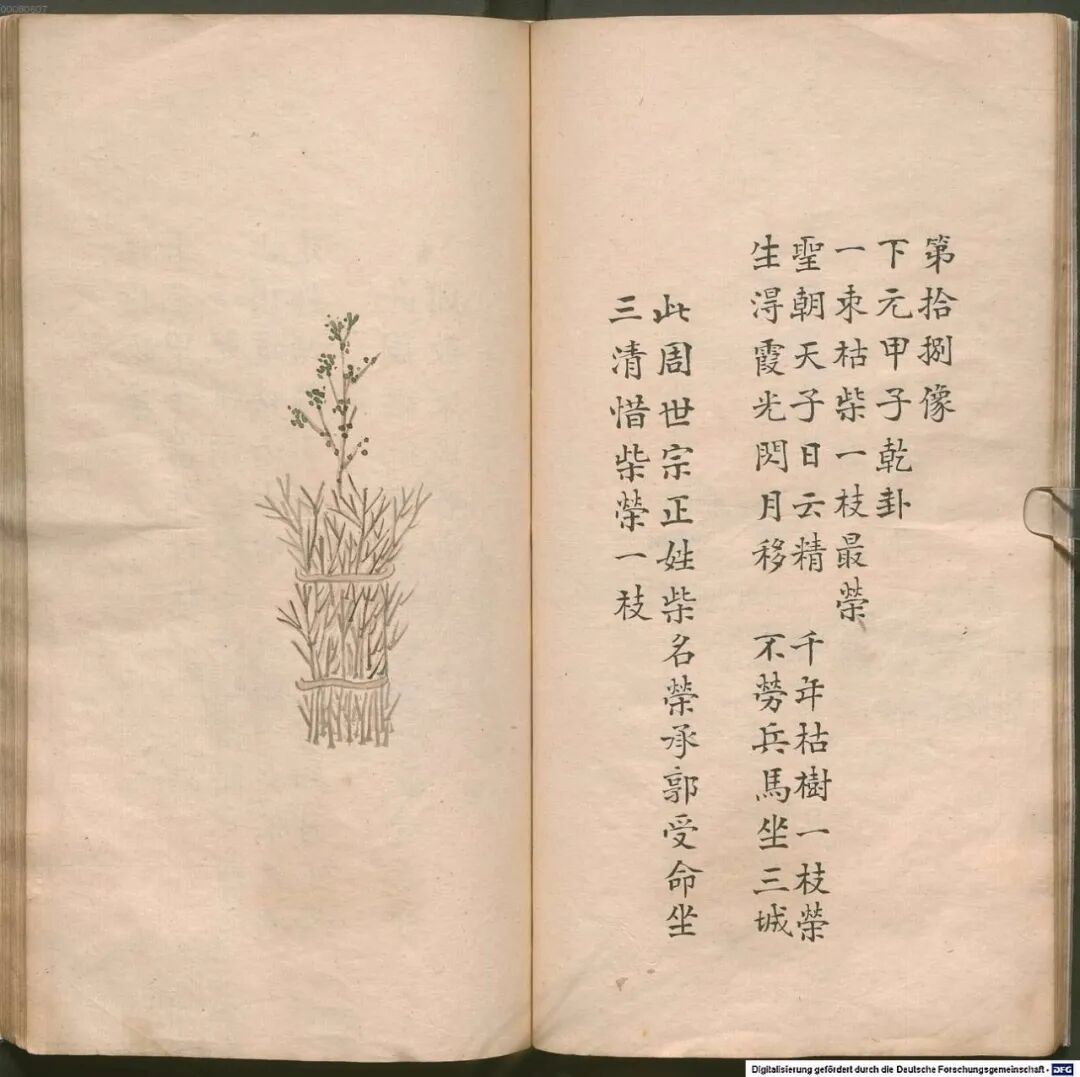 第拾捌像
下元甲子乾卦
一束枯柴一枝最榮
聖朝天子日云精 千年枯樹一枝榮
生淂霞光閃月移 不勞兵馬坐三城
此周世宗正姓柴名榮承郭受命坐
三清惜柴榮一枝
00080607
Digitalisierung gefördert durch die Deutsche Forschungsgemeinschaft - DFG